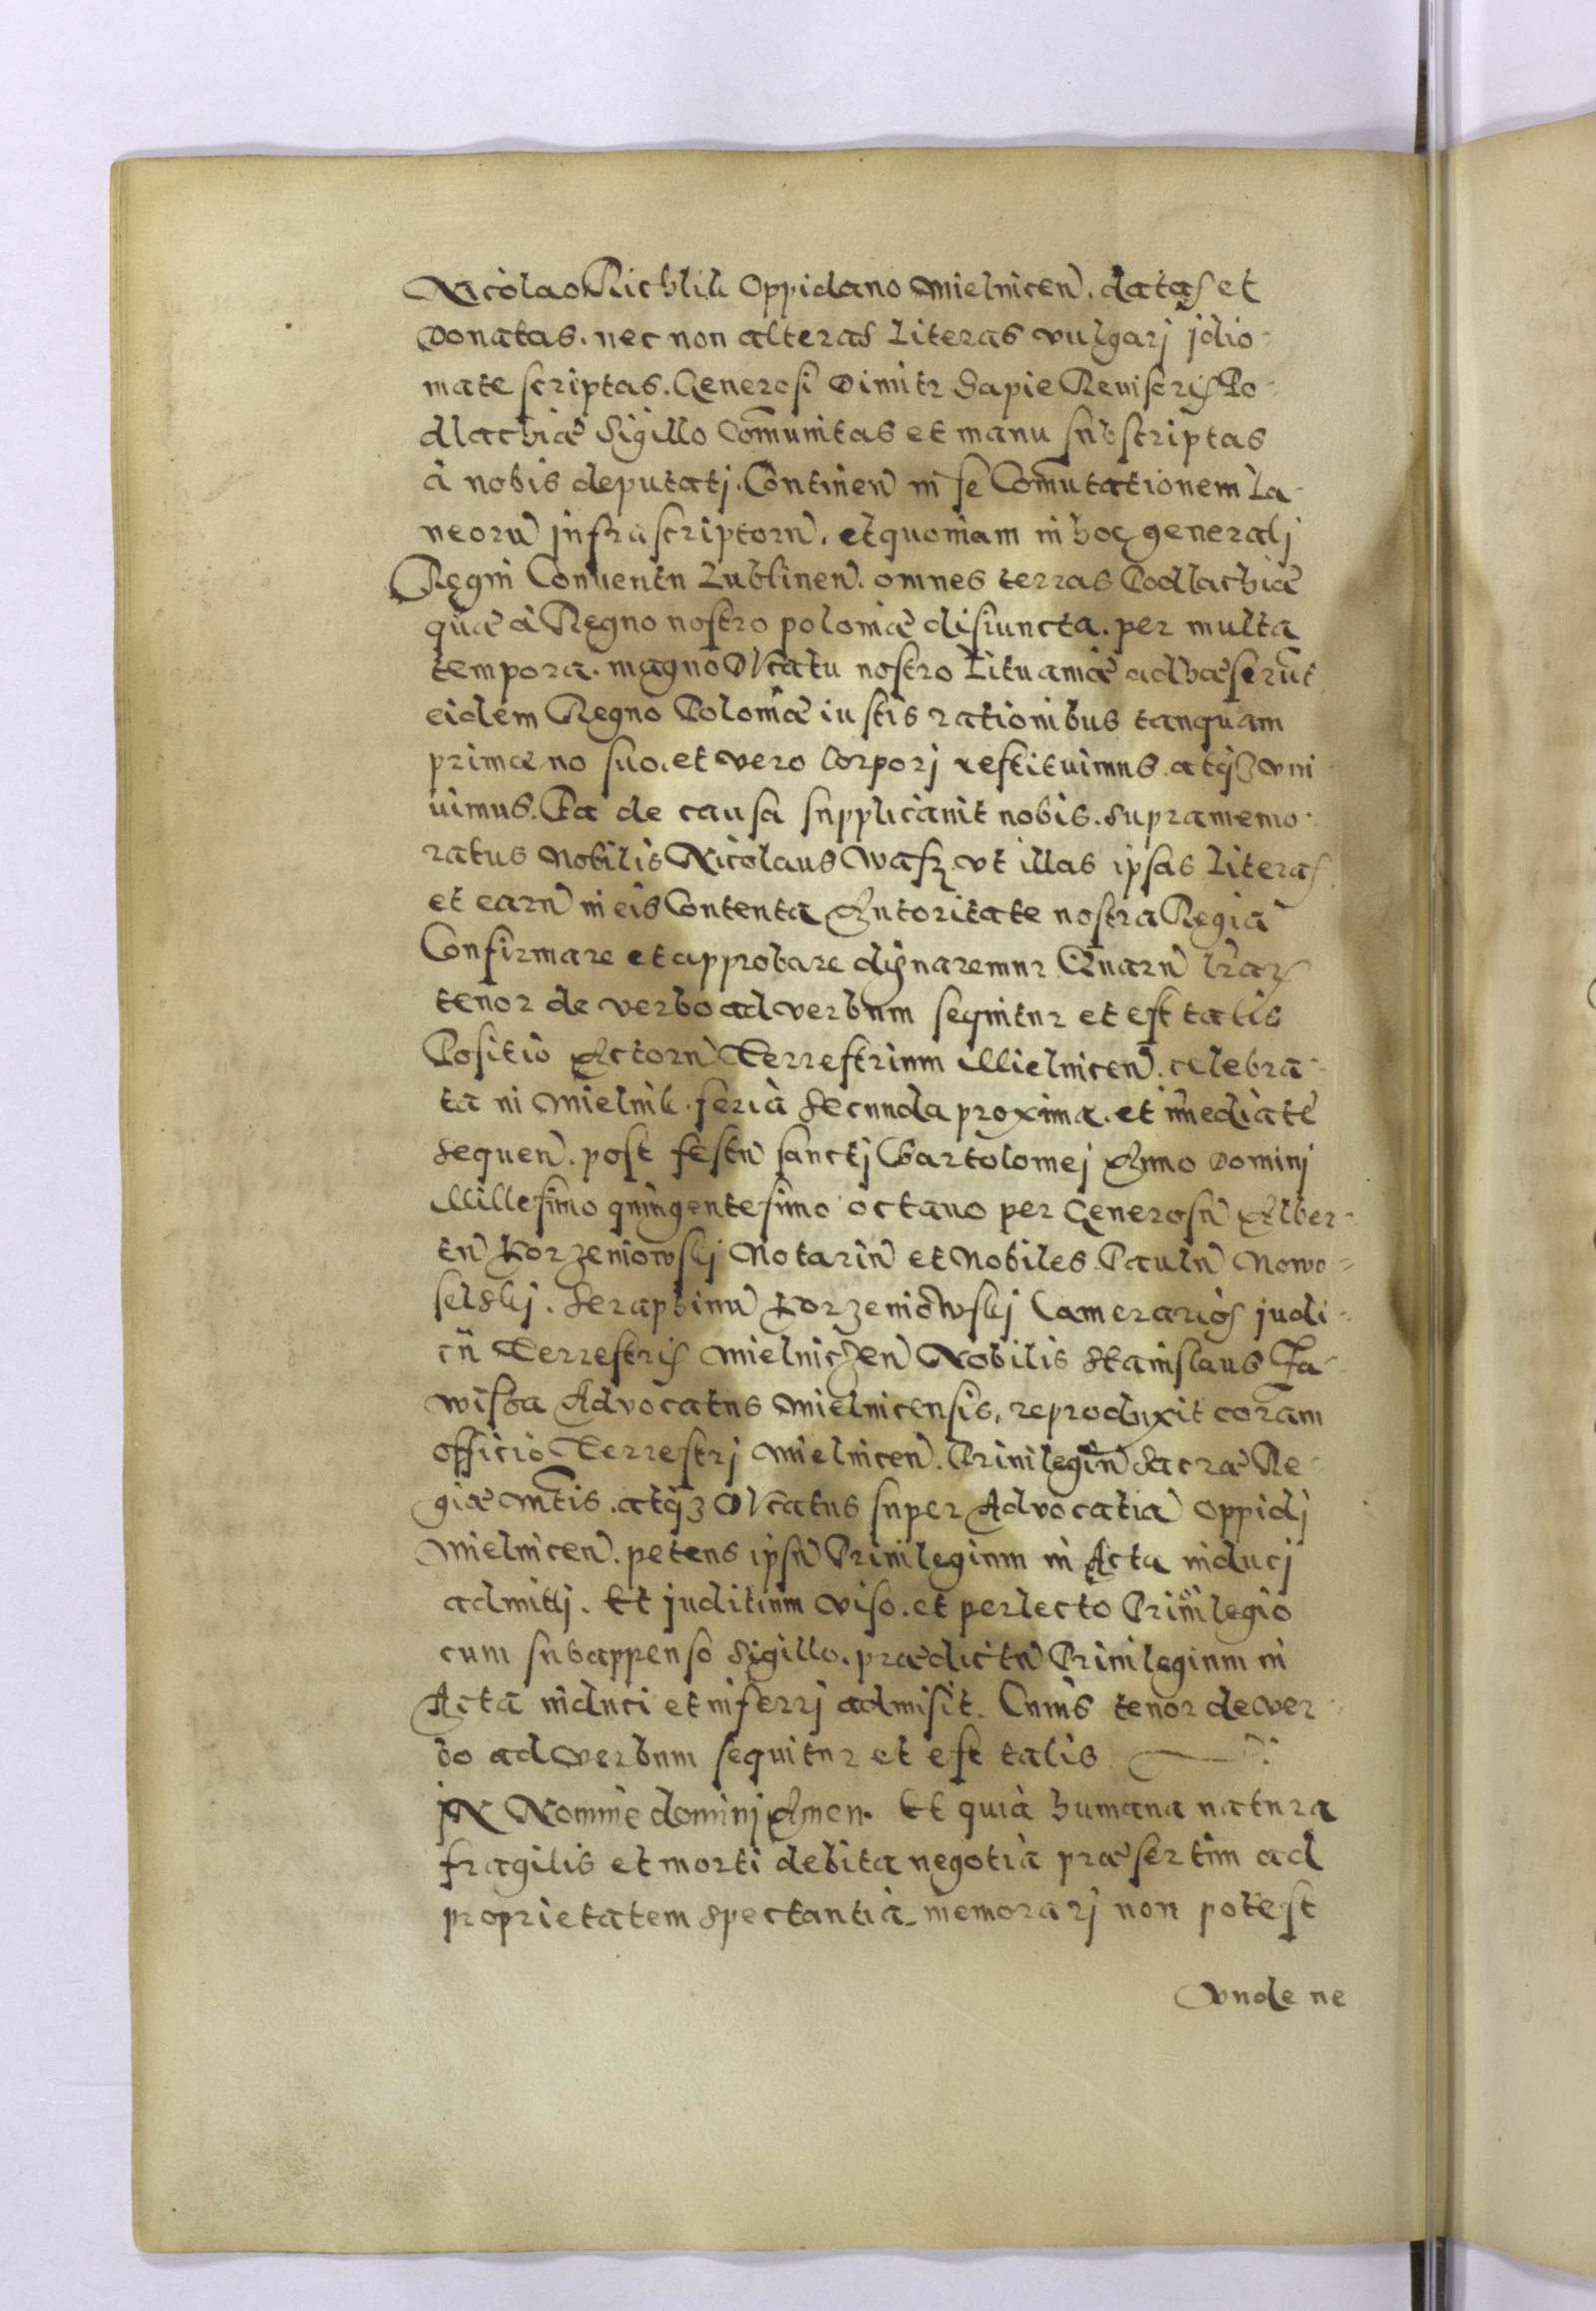 Nicolao Richlik Oppidano Mielnicen̄. datas et
Donatas. nec non alteras Literas vulgarj jdio-
mate scriptas. Generosi Dimitr Sapie Reuisoris Po-
dlachiæ Sigillo Com̄unitas et manu subscriptas
à nobis deputatj. Continen̄ in se Com̄utationem La-
neorū jnfrascriptorū. et quoniam in hoc generalj
Regni Conuentu Lublinen̄. omnes terras Podlachiæ
quæ à Regno nostro poloniæ disiuncta. per multa
tempora. magno Dūcatu nostro Lituaniæ adhæserūt
eidem Regno Poloniæ iustis rationibus tanquam
primæno suo. et vero Corporj restituimus. atqȝ vni
uimus. Ea de causa supplicauit nobis. supramemo-
ratus Nobilis Nicolaus Wasz vt illas ipsas Literas
et earū in eis Contenta Autoritate nostra Regia
Confirmare et approbare dignaremur Quarū l̄rar̄
tenor de verbo ad verbum sequitur et est talis
Positio Actorū Terrestrium Mielnicen̄. celebra-
ta in Mielnik. feria secunda proxima. et im̄ediatè
sequen̄. post festū sanctj Bartolomej Anno Dominj
Millesimo quingentesimo octauo per Generosū Alber-
tū Korzeniowskj Notariū et Nobiles Paulū Nowo-
selskj. Seraphinū Korzeniowskj Camerarios judi-
cii Terrestris Mielniczen̄ Nobilis Stanislaus Ja-
wisza Advocatus Mielnicensis, reproduxit coram
officio Terrestrj Mielnicen̄. Priuilegiū Sacræ Re-
giæ M̄tis. atqȝ Dūcatus super Advocatiā Oppidj
Mielnicen̄. petens ipsū Priuilegium in Acta inducj
admittj. Et juditium viso. et perlecto Priuilegio
cum subappenso Sigillo. prædictū Priuilegium in
Acta induci et inferrj admisit. Cuius tenor de ver-
bo ad verbum sequitur et est talis
JN Nomine dominj Amen. Et quià humana natura
fragilis et morti debita negotià præsertim ad
proprietatem spectantià memorarj non potest
Vnde ne